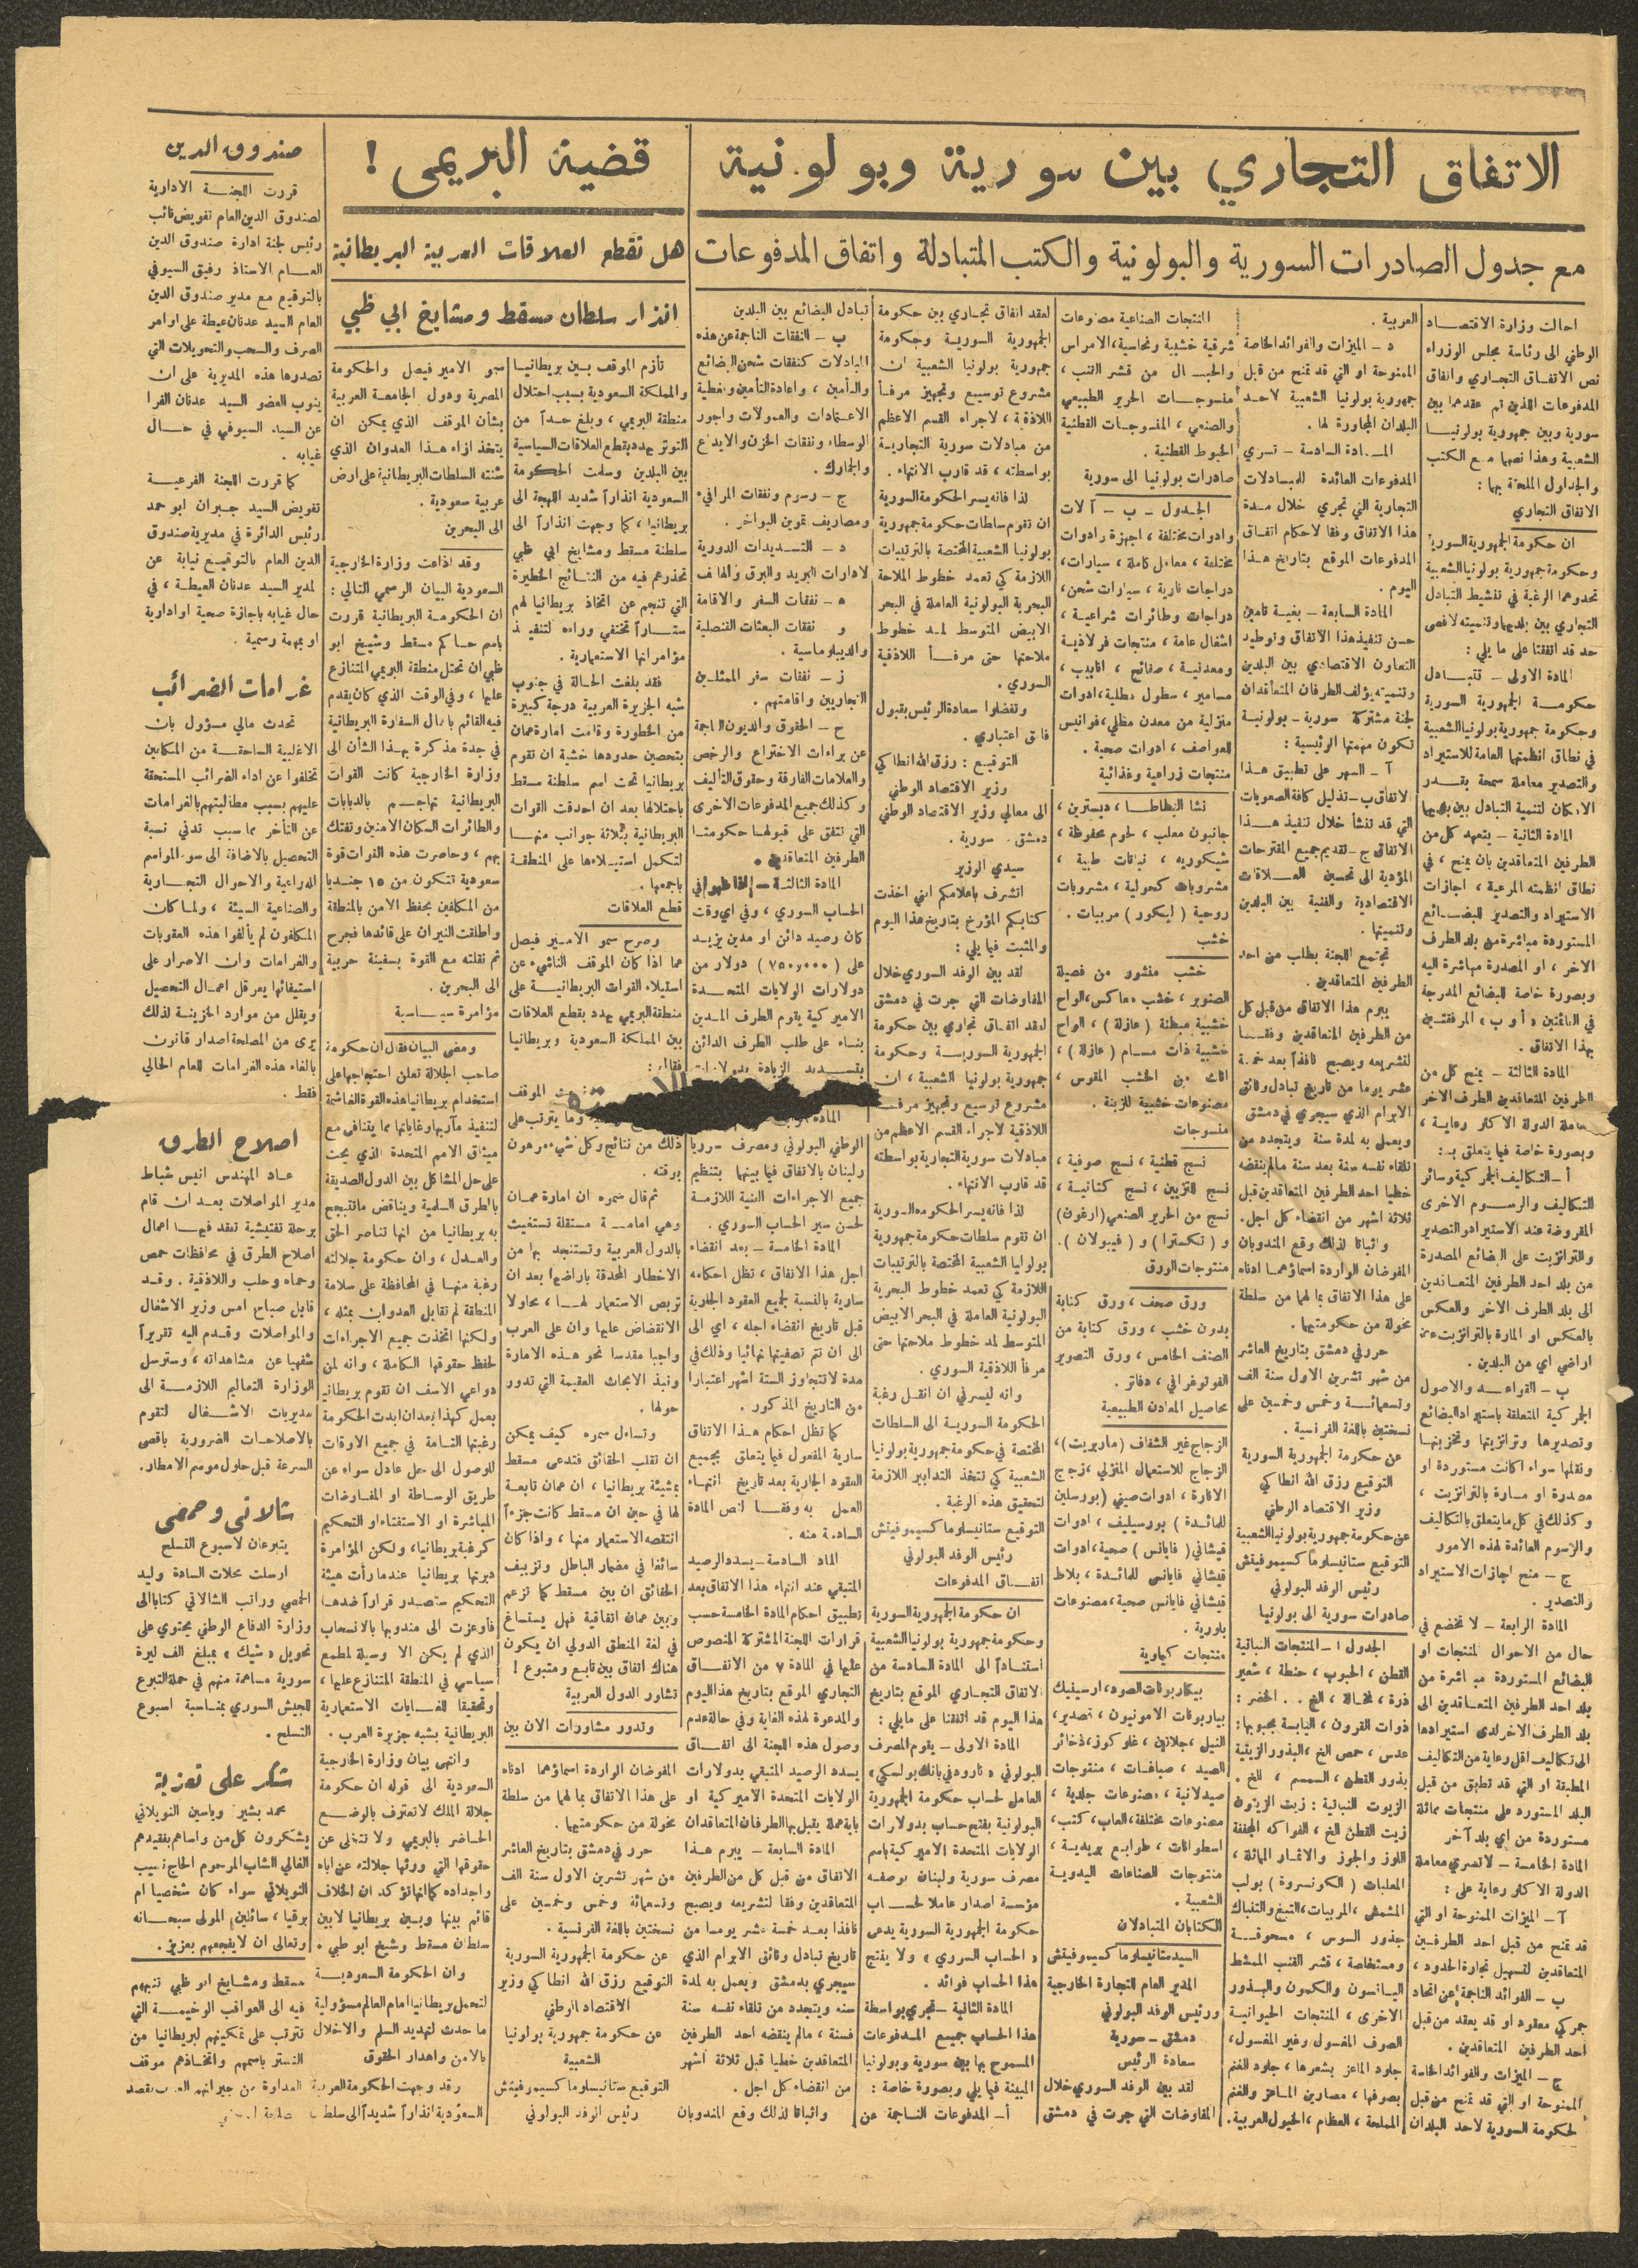 الاتفاق التجاري بين سورية وبولونية
مع جدول الصادرات السورية والبولونية والكتب المتبادلة واتفاق المدفوعات
احالت وزارة الاقتصاد
الوطني الى رئاسة مجلس الوزراء
نص الاتفاق التجاري واتفاق
المدفوعات اللذين تم عقدهما بين
سورية وبين جمهورية بولونيا
الشعبية وهذا نصهما مع الكتب
والجداول الملحقة بهما :
الاتفاق التجاري
ان حكومة الجمهورية السورية
وحكومة جمهورية بولونيا الشعبية
تحدوهما الرغبة في تنشيط التبادل
التجاري بين بلديهما وتنميته لاقصى
حد قد اتفقتا على ما يلي :
المادة الاولى – تتبادل
حكومة الجمهورية السورية
وحكومة جمهورية بولونيا الشعبية
في نطاق انظمتها العامة للاستيراد
والتصدير معاملة سمحة بقدر
الامكان لتنمية التبادل بين بلديهما
المادة الثانية – يتعهد كل من
الطرفين المتعاقدين بان يمنح ، في
نطاق انظمته المرعية ، اجازات
الاستيراد والتصدير للبضائع
المستوردة مباشرة من بلد الطرف
الاخر ، او المصدرة مباشرة اليه
وبصورة خاصة للبضائع المدرجة
في القائمتين « أ و ب » المرفقتين
بهذا الاتفاق .
المادة الثالثة – يمنح كل من
الطرفين المتعاقدين الطرف الاخر
معاملة الدولة الاكثر رعاية ،
وبصورة خاصة فيما يتعلق بـ :
أ – التكاليف الجمركية وسائر
التكاليف والرسوم الاخرى
المفروضة عند الاستيراد والتصدير
والترانزيت على البضائع المصدرة
من بلد احد الطرفين المتعاقدين
الى بلد الطرف الاخر والعكس
بالعكس او المارة بالترانزيت عبر
اراضي اي من البلدين .
ب – القواعد والاصول
الجمركية المتعلقة باستيراد البضائع
وتصديرها وترانزيتها وتخزينها
ونقلها سواء اكانت مستوردة او
مصدرة او مارة بالترانزيت ،
وكذلك في كل ما يتعلق بالتكاليف
والرسوم العائدة لهذه الامور
ج – منح اجازات الاستيراد
والتصدير .
المادة الرابعة – لا تخضع في
حال من الاحوال المنتجات او
البضائع المستوردة مباشرة من
بلد احد الطرفين المتعاقدين الى
بلد الطرف الاخر لدى استيرادها
الى تكاليف اقل رعاية من التكاليف
المطبقة او التي قد تطبق من قبل
البلد المستورد على منتجات مماثلة
مستوردة من اي بلد آخر
المادة الخامسة – لا تسري معاملة
الدولة الاكثر رعاية على :
آ – الميزات الممنوحة او التي
قد تمنح من قبل احد الطرفين
المتعاقدين لتسهيل تجارة الحدود ،
ب – الفوائد الناجمة عن اتحاد
جمركي معقود او قد يعقد من قبل
احد الطرفين المتعاقدين .
ج – الميزات والفوائد الخاصة
الممنوحة او التي قد تمنح من قبل
الحكومة السورية لاحد البلدان
العربية .
د – الميزات والفوائد الخاصة
الممنوحة او التي قد تمنح من قبل
جمهورية بولونيا الشعبية لاحد
البلدان المجاورة لها .
المادة السادسة – تسري
المدفوعات العائدة للمبادلات
التجارية التي تجري خلال مدة
هذا الاتفاق وفقا لاحكام اتفاق
المدفوعات الموقع بتاريخ هذا
اليوم .
المادة السابعة – بغية تامين
حسن تنفيذ هذا الاتفاق وتوطيد
التعاون الاقتصادي بين البلدين
وتنميته يؤلف الطرفان المتعاقدان
لجنة مشتركة سورية – بولونية
تكون مهمتها الرئيسية :
آ – السهر على تطبيق هذا
الاتفاق ب – تذليل كافة الصعوبات
التي قد تنشأ خلال تنفيذ هذا
الاتفاق ج – تقديم جميع المقترحات
المؤدية الى تحسين العلاقات
الاقتصادية والفنية بين البلدين
وتنميتها .
تجتمع اللجنة بطلب من احد
الطرفين المتعاقدين .
يبرم هذا الاتفاق من قبل كل
من الطرفين المتعاقدين وفقا
لتشريعه ويصبح نافذاً بعد خمسة
عشر يوما من تاريخ تبادل وثائق
الابرام الذي سيجري في دمشق
ويعمل به لمدة سنة ويتجدد من
تلقاء نفسه سنة بعد سنة مالم ينقضه
خطيا احد الطرفين المتعاقدين قبل
ثلاثة اشهر من انقضاء كل اجل.
واثباتا لذلك وقع المندوبان
المفوضان الواردة اسماؤهما ادناه
على هذا الاتفاق بما لهما من سلطة
مخولة من حكومتيهما .
حرر في دمشق بتاريخ العاشر
من شهر تشرين الاول سنة الف
وتسعمائة وخمس وخمسين على
نسختين باللغة الفرنسية .
عن حكومة الجمهورية السورية
التوقيع رزق الله انطاكي
وزير الاقتصاد الوطني
عن حكومة جمهورية بولونيا الشعبية
التوقيع ستانيسلوماكسيموفيتش
رئيس الوفد البولوني
صادرات سورية الى بولونيا
الجدول ا – المنتجات النباتية
القطن ، الحبوب ، حنطة ، شعير
ذرة ، نخالة ، الخ . . الخضر :
ذوات القرون ، اليابسة بحبوبها :
عدس ، حمص الخ ، البذور الزيتية
بذور القطن ، السمسم ، الخ .
الزيوت النباتية : زيت الزيتون
زيت القطن الخ ، الفواكه المجففة
اللوز والجوز والاثمار المماثلة ،
المعلبات ( الكونسروة ) بولب
المشمش ، المربيات ، التبغ والتنباك
جذور السوس ، مسحوقة
ومستخلصة ، قشر القنب الممشط
اليانسون والكمون والبذور
الاخرى ، المنتجات الحيوانية
الصوف المغسول وغير المغسول ،
جلود الماعز بشعرها ، جلود الغنم
بصوفها ، مصارين الماعز والغنم
المملحة ، العظام ، الخيول العربية .
المنتجات الصناعية مصنوعات
شرقية خشبية ونحاسية ، الامراس
والحبال من قشر القنب ،
منسوجات الحرير الطبيعي
والصنعي ، المنسوجات القطنية
الخيوط القطنية .
صادرات بولونيا الى سورية
الجدول – ب – آلات
وادوات مختلفة ، اجهزة وادوات
مختلفة ، معامل كاملة ، سيارات ،
دراجات نارية ، سيارات شحن،
دراجات وطائرات شراعية ،
اشغال عامة ، منتجات فولاذية
ومعدنية ، صفائح ، انابيب ،
مسامير ، سطول مطلية ، ادوات
منزلية من معدن مطلي ، فوانيس
للعواصف ، ادوات صحية .
منتجات زراعية وغذائية
نشا البطاطا ، ديسترين ،
جانبون معلب ، لحوم محفوظة ،
شيكوريه ، نباتات طبية ،
مشروبات كحولية ، مشروبات
روحية ( ليكور ) مربيات .
خشب
خشب منشور من فصيلة
الصنوبر ، خشب معاكس ، الواح
خشبية مبطنة ( عازلة ) ، الواح
خشبية ذات مسام ( عازلة ) ،
اثاث من الخشب المقوس ،
مصنوعات خشبية للزينة .
منسوجات
نسج قطنية ، نسج صوفية ،
نسج للتزيين ، نسج كتانية ،
نسج من الحرير الصنعي ( ارغون )
و ( تكسترا ) و ( فيبولان ) .
منتوجات الورق
ورق صحف ، ورق كتابة
بدون خشب ، ورق كتابة من
الصنف الخامس ، ورق التصوير
الفوتوغرافي ، دفاتر .
محاصيل المعادن الطبيعية
الزجاج غير الشفاف ( ماربريت ) ،
الزجاج للاستعمال المنزلي ، زجج
الانارة ، ادوات صيني ( بورسلين
للمائدة ) بورسيليف ، ادوات
قيشاني ( فايانس ) صحية ، ادوات
قيشاني فايانس للمائدة ، بلاط
قيشاني فايانس صحية ، مصنوعات
بلورية .
منتجات كيماوية
بيكاربونات الصود ، ارسينيك
بياربونات الامونيون ، قصدير ،
النيل ، جلاتين ، غلوكوز ، ذخائر
الصيد ، صباغات ، منتوجات
صيدلانية ، مصنوعات جلدية ،
مصنوعات مختلفة ، العاب ، كتب ،
اسطوانات ، طوابع بريدية ،
منتوجات الصناعات اليدوية
الشعبية .
الكتابان المتبادلان
السيد ستانيسلوماكسيموفيتش
المدير العام للتجارة الخارجية
ورئيس الوفد البولوني
دمشق – سورية
سعادة الرئيس
لقد بين الوفد السوري خلال
المفاوضات التي جرت في دمشق
لعقد اتفاق تجاري بين حكومة
الجمهورية السورية وحكومة
جمهورية بولونيا الشعبية ان
مشروع توسيع وتجهيز مرفأ
اللاذقية ، لاجراء القسم الاعظم
من مبادلات سورية التجارية
بواسطته ، قد قارب الانتهاء .
لذا فانه يسر الحكومة السورية
ان تقوم سلطات حكومة جمهورية
بولونيا الشعبية المختصة بالترتيبات
اللازمة كي تعمد خطوط الملاحة
البحرية البولونية العاملة في البحر
الابيض المتوسط لمد خطوط
ملاحتها حتى مرفأ اللاذقية
السوري .
وتفضلوا سعادة الرئيس بقبول
فائق اعتباري .
التوقيع : رزق الله انطاكي
وزير الاقتصاد الوطني
الى معالي وزير الاقتصاد الوطني
دمشق . سورية .
سيدي الوزير
اتشرف باعلامكم انني اخذت
كتابكم المؤرخ بتاريخ هذا اليوم
والمثبت فيما يلي :
لقد بين الوفد السوري خلال
المفاوضات التي جرت في دمشق
لعقد اتفاق تجاري بين حكومة
الجمهورية السورية وحكومة
جمهورية بولونيا الشعبية ، ان
مشروع توسيع وتجهيز مرفأ
اللاذقية لاجراء القسم الاعظم من
مبادلات سورية التجارية بواسطته
قد قارب الانتهاء .
لذا فانه يسر الحكومة السورية
ان تقوم سلطات حكومة جمهورية
بولونيا الشعبية المختصة بالترتيبات
اللازمة كي تعمد خطوط البحرية
البولونية العاملة في البحر الابيض
المتوسط لمد خطوط ملاحتها حتى
مرفأ اللاذقية السوري .
وانه ليسرني ان انقل رغبة
الحكومة السورية الى السلطات
المختصة في حكومة جمهورية بولونيا
الشعبية كي تتخذ التدابير اللازمة
لتحقيق هذه الرغبة .
التوقيع ستانيسلوماكسيموفيتش
رئيس الوفد البولوني
اتفاق المدفوعات
ان حكومة الجمهورية السورية
وحكومة جمهورية بولونيا الشعبية
استناداً الى المادة السادسة من
الاتفاق التجاري الموقع بتاريخ
هذا اليوم قد اتفقتا على مايلي :
المادة الاولى – يقوم المصرف
البولوني « نارودني بانك بولسكي »
العامل لحساب حكومة الجمهورية
البولونية بفتح حساب بدولارات
الولايات المتحدة الاميركية باسم
مصرف سورية ولبنان بوصفه
مؤسسة اصدار عاملا لحساب
حكومة الجمهورية السورية يدعى
« الحساب السوري » ولا يفتح
هذا الحساب فوائد .
المادة الثانية – تجري بواسطة
هذا الحساب جميع المدفوعات
المسموح بها بين سورية وبولونيا
المبينة فيما يلي وبصورة خاصة :
أ – المدفوعات الناجمة عن
تبادل البضائع بين البلدين
ب – النفقات الناجمة عن هذه
المبادلات كنفقات شحن البضائع
والتأمين ، واعادة التأمين وتغطية
الاعتمادات والعمولات واجور
الوسطاء ونفقات الخزن والايداع
والجمارك .
ج – رسوم ونفقات المرافيء
ومصاريف تموين البواخر .
د – التسديدات الدورية
لادارات البريد والبرق والهاتف
ه – نفقات السفر والاقامة
و نفقات البعثات القنصلية
والديبلوماسية .
ز – نفقات سفر الممثلين
التجاريين واقامتهم .
ح – الحقوق والديون الناجمة
عن براءات الاختراع والرخص
والعلامات الفارقة وحقوق التأليف
وكذلك جميع المدفوعات الاخرى
التي تتفق على قبولها حكومتا
الطرفين المتعاقدين .
المادة الثالثة – إذا ظهر في
الحساب السوري ، وفي اي وقت
كان رصيد دائن او مدين يزيد
على ( ٧٥٠,٠٠٠ ) دولار من
دولارات الولايات المتحدة
الاميركية يقوم الطرف المدين
بناء على طلب الطرف الدائن
بتسديد الزيادة بدولارات
المادة
الوطني البولوني ومصرف سوريا
ولبنان بالاتفاق فيما بينهما بتنظيم
جميع الاجراءات الفنية اللازمة
لحسن سير الحساب السوري .
المادة الخامسة – بعد انقضاء
اجل هذا الاتفاق ، تظل احكامه
سارية بالنسبة لجميع العقود الجارية
قبل تاريخ انقضاء اجله ، اي الى
الى ان تتم تصفيتها نهائيا وذلك في
مدة لا تتجاوز الستة اشهر اعتبارا
من التاريخ المذكور .
كما تظل احكام هذا الاتفاق
سارية المفعول فيما يتعلق بجميع
العقود الجارية بعد تاريخ انتهاء
العمل به وفقا لنص المادة
السادسة منه .
الماد السادسة – يسدد الرصيد
المتبقي عند انتهاء هذا الاتفاق بعد
تطبيق احكام المادة الخامسة حسب
قرارات اللجنة المشتركة المنصوص
عليها في المادة ٧ من الاتفاق
التجاري الموقع بتاريخ هذا اليوم
والمدعوة لهذه الغاية وفي حالة عدم
وصول هذه اللجنة الى اتفاق
يسدد الرصيد المتبقي بدولارات
الولايات المتحدة الاميركية او
باية عملة يقبل بها الطرفان المتعاقدان
المادة السابعة – يبرم هذا
الاتفاق من قبل كل من الطرفين
المتعاقدين وفقا لتشريعه ويصبح
نافذا بعد خمسة عشر يوما من
تاريخ تبادل وثائق الابرام الذي
سيجري بدمشق ويعمل به لمدة
سنه ويتجدد من تلقاء نفسه سنة
فسنة ، مالم ينقضه احد الطرفين
المتعاقدين خطيا قبل ثلاثة اشهر
من انقضاء كل اجل .
واثباتا لذلك وقع المندوبان
المفوضان الواردة اسماؤهما ادناه
على هذا الاتفاق بما لهما من سلطة
مخولة من حكومتيهما .
حرر في دمشق بتاريخ العاشر
من شهر تشرين الاول سنة الف
وتسعمائة وخمس وخمسين على
نسختين باللغة الفرنسية .
عن حكومة الجمهورية السورية
التوقيع رزق الله انطاكي وزير
الاقتصاد الوطني
عن حكومة جمهورية بولونيا
الشعبية
التوقيع ستانيسلوماكسيموفيتش
رئيس الوفد البولوني
قضية البريمي !
هل تقطع العلاقات العربية البريطانية
انذار سلطان مسقط ومشايخ ابي ظبي
تأزم الموقف بين بريطانيا
والمملكة السعودية بسبب احتلال
منطقة البريمي ، وبلغ حداً من
التوتر يهدد بقطع العلاقات السياسية
بين البلدين وسلمت الحكومة
السعودية انذاراً شديد اللهجة الى
بريطانيا ، كما وجهت انذاراً الى
سلطنة مسقط ومشايخ ابي ظبي
تحذرهم فيه من النتائج الخطيرة
التي تنجم عن اتخاذ بريطانيا لهم
ستاراً تختفي وراءه لتنفيذ
مؤامراتها الاستعمارية .
فقد بلغت الحالة في جنوب
شبه الجزيرة العربية درجة كبيرة
من الخطورة وقامت امارة عمان
بتحصين حدودها خشية ان تقوم
بريطانيا تحت اسم سلطنة مسقط
باحتلالها بعد ان احدقت القوات
البريطانية بثلاثة جوانب منها
لتكمل استيلاءها على المنطقة
باجمعها .
قطع العلاقات
وصرح سمو الامير فيصل
عما اذا كان الموقف الناشيء عن
استيلاء القوات البريطانية على
منطقة البريمي يهدد بقطع العلاقات
بين المملكة السعودية وبريطانيا
فقال :
الموقف
وما يترتب على
ذلك من نتائج وكل شيء مرهون
بوقته .
ثم قال سموه ان امارة عمان
وهي امامة مستقلة تستغيث
بالدول العربية وتستنجد بها من
الاخطار المحدقة باراضيها بعد ان
تربص الاستعمار لها ، محاولا
الانقضاض عليها وان على العرب
واجبا مقدسا نحو هذه الامارة
ونبذ الابحاث العقيمة التي تدور
حولها .
وتساءل سموه كيف يمكن
ان تقلب الحقائق فتدعى مسقط
بمشيئة بريطانيا ، ان عمان تابعة
لها في حين ان مسقط كانت جزءاً
انتقصه الاستعمار منها ، واذا كان
سائغا في مضمار الباطل وتزييف
الحقائق ان بين مسقط كما تزعم
وبين عمان اتفاقية فهل يستساغ
في لغة المنطق الدولي ان يكون
هناك اتفاق بين تابع ومتبوع !
تشاور الدول العربية
وتدور مشاورات الان بين
سمو الامير فيصل والحكومة
المصرية ودول الجامعة العربية
بشأن الموقف الذي يمكن ان
يتخذ ازاء هذا العدوان الذي
شنته السلطات البريطانية على ارض
عربية سعودية .
الى البحرين
وقد اذاعت وزارة الخارجية
السعودية البيان الرسمي التالي :
ان الحكومة البريطانية قررت
باسم حاكم مسقط وشيخ ابو
ظبي ان تحتل منطقة البريمي المتنازع
عليها ، وفي الوقت الذي كان يقدم
فيه القائم باعمال السفارة البريطانية
في جدة مذكرة بهذا الشأن الى
وزارة الخارجية كانت القوات
البريطانية تهاجم بالدبابات
والطائرات السكان الامنين وتفتك
بهم ، وحاصرت هذه القوات قوة
سعودية تتكون من ١٥ جنديا
من المكلفين بحفظ الامن بالمنطقة
واطلقت النيران على قائدها فجرح
ثم نقلته مع القوة بسفينة حربية
الى البحرين .
مؤامرة سياسية
ومضى البيان فقال ان حكومة
صاحب الجلالة تعلن احتجاجها على
استخدام بريطانيا هذه القوة الغاشمة
لتنفيذ مآربها وغاياتها مما يتنافى مع
ميثاق الامم المتحدة الذي يحث
على حل المشاكل بين الدول الصديقة
بالطرق السلمية ويناقض ماتتبجح
به بريطانيا من انها تناصر الحق
والعدل ، وان حكومة جلالته
رغبة منها في المحافظة على سلامة
المنطقة لم تقابل العدوان بمثله ،
ولكنها اتخذت جميع الاجراءات
لحفظ حقوقها الكاملة ، وانه لمن
دواعي الاسف ان تقوم بريطانيا
بعمل كهذا بعد ان ابدت الحكومة
رغبتها التامة في جميع الاوقات
للوصول الى حل عادل سواء عن
طريق الوساطة او المفاوضات
المباشرة او الاستفتاء او التحكيم
كرغبة بريطانيا ، ولكن المؤامرة
دبرتها بريطانيا عندما رأت هيئة
التحكيم ستصدر قراراً ضدها
فأوعزت الى مندوبها بالانسحاب
الذي لم يكن الا وسيلة لمطمع
سياسي في المنطقة المتنازع عليها ،
وتحقيقا للغايات الاستعمارية
البريطانية بشبه جزيرة العرب .
وانتهى بيان وزارة الخارجية
السعودية الى قوله ان حكومة
جلالة الملك لا تعترف بالوضع
الحاضر بالبريمي ولا تتخلى عن
حقوقها التي ورثها جلالته عن اباه
واجداده كما انها تؤكد ان الخلاف
قائم بينها وبين بريطانيا لابين
سلطان مسقط وشيخ ابو ظبي .
وان الحكومة السعودية
لتحمل بريطانيا امام العالم مسؤولية
ما حدث لتهديد السلم والاخلال
بالامن واهدار الحقوق
وقد وجهت الحكومة العربية
السعودية انذاراً شديداً الى سلطان
مسقط ومشايخ ابو ظبي تنبههم
فيه الى العواقب الوخيمة التي
تترتب على تمكينهم لبريطانيا من
التستر باسمهم واتخاذهم موقف
العداوة من جيرانهم العرب بقصد
صندوق الدين
قررت اللجنة الادارية
لصندوق الدين العام تفويض نائب
رئيس لجنة ادارة صندوق الدين
العام الاستاذ رفيق السيوفي
بالتوقيع مع مدير صندوق الدين
العام السيد عدنان عيطة على اوامر
الصرف والسحب والتحويلات التي
تصدرها هذه المديرية على ان
ينوب العضو السيد عدنان الفرا
عن السيد السيوفي في حال
غيابه .
كما قررت اللجنة الفرعية
تفويض السيد جبران ابو حمد
رئيس الدائرة في مديرية صندوق
الدين العام بالتوقيع نيابة عن
المدير السيد عدنان العيطة ، في
حال غيابه باجازة صحية او ادارية
او بمهمة رسمية .
غرامات الضرائب
تحدث مالي مسؤول بان
الاغلبية الساحقة من المكلفين
تخلفوا عن اداء الضرائب المستحقة
عليهم بسبب مطالبتهم بالغرامات
عن التأخر مما سبب تدني نسبة
التحصيل بالاضافة الى سوء المواسم
الزراعية والاحوال التجارية
والصناعية السيئة ، ولما كان
المكلفون لم يألفوا هذه العقوبات
والغرامات وان الاصرار على
استيفائها يعرقل اعمال التحصيل
ويقلل من موارد الخزينة لذلك
يرى من المصلحة اصدار قانون
بالغاء هذه الغرامات للعام الحالي
فقط .
اصلاح الطرق
عاد المهندس انيس شباط
مدير المواصلات بعد ان قام
برحلة تفتيشية تفقد فيها اعمال
اصلاح الطرق في محافظات حمص
وحماه وحلب واللاذقية . وقد
قابل صباح امس وزير الاشغال
والمواصلات وقدم اليه تقريراً
شفهيا عن مشاهداته ، وسترسل
الوزارة التعاليم اللازمة الى
مديريات الاشغال لتقوم
بالاصلاحات الضرورية باقصى
السرعة قبل حلول موسم الامطار.
شالاتي وحمصي
يتبرعان لاسبوع التسلح
ارسلت محلات السادة وليد
الحمصي وراتب الشالاتي كتابا الى
وزارة الدفاع الوطني يحتوي على
تحويل « شيك » بمبلغ الف ليرة
سورية مساهمة منهم في حملة التبرع
للجيش السوري بمناسبة اسبوع
التسلح .
شكر على تعزية
محمد بشير وياسين النويلاتي
يشكرون كل من واساهم بفقيدهم
الغالي الشاب المرحوم الحاج نسيب
النويلاتي سواء كان شخصيا ام
برقيا ، سائلين المولى سبحانه
وتعالى ان لا يفجعهم بعزيز .